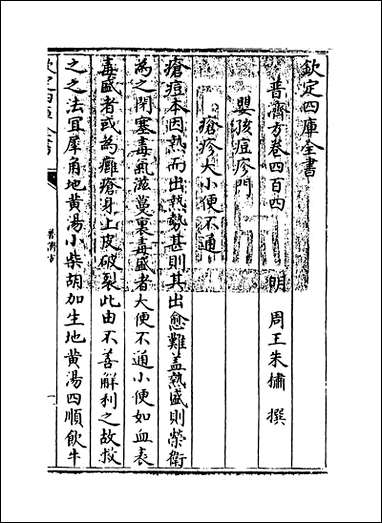 欽定四庫全書
普濟方卷四百四
明 周王朱橚 撰
嬰孩痘疹門
瘡疹大小便不通
瘡痘本因熱而出熱勢甚則其出愈難盖熱盛則榮衛
為之閉塞毒氣滋蔓裏毒盛者大便不通小便如血表
毒盛者或為癰瘡身上皮破裂此由不善解利之故救
之之法冝犀角地黄湯小柴胡加生地黄湯四順飲牛
欽定四庫全書
普濟方
一